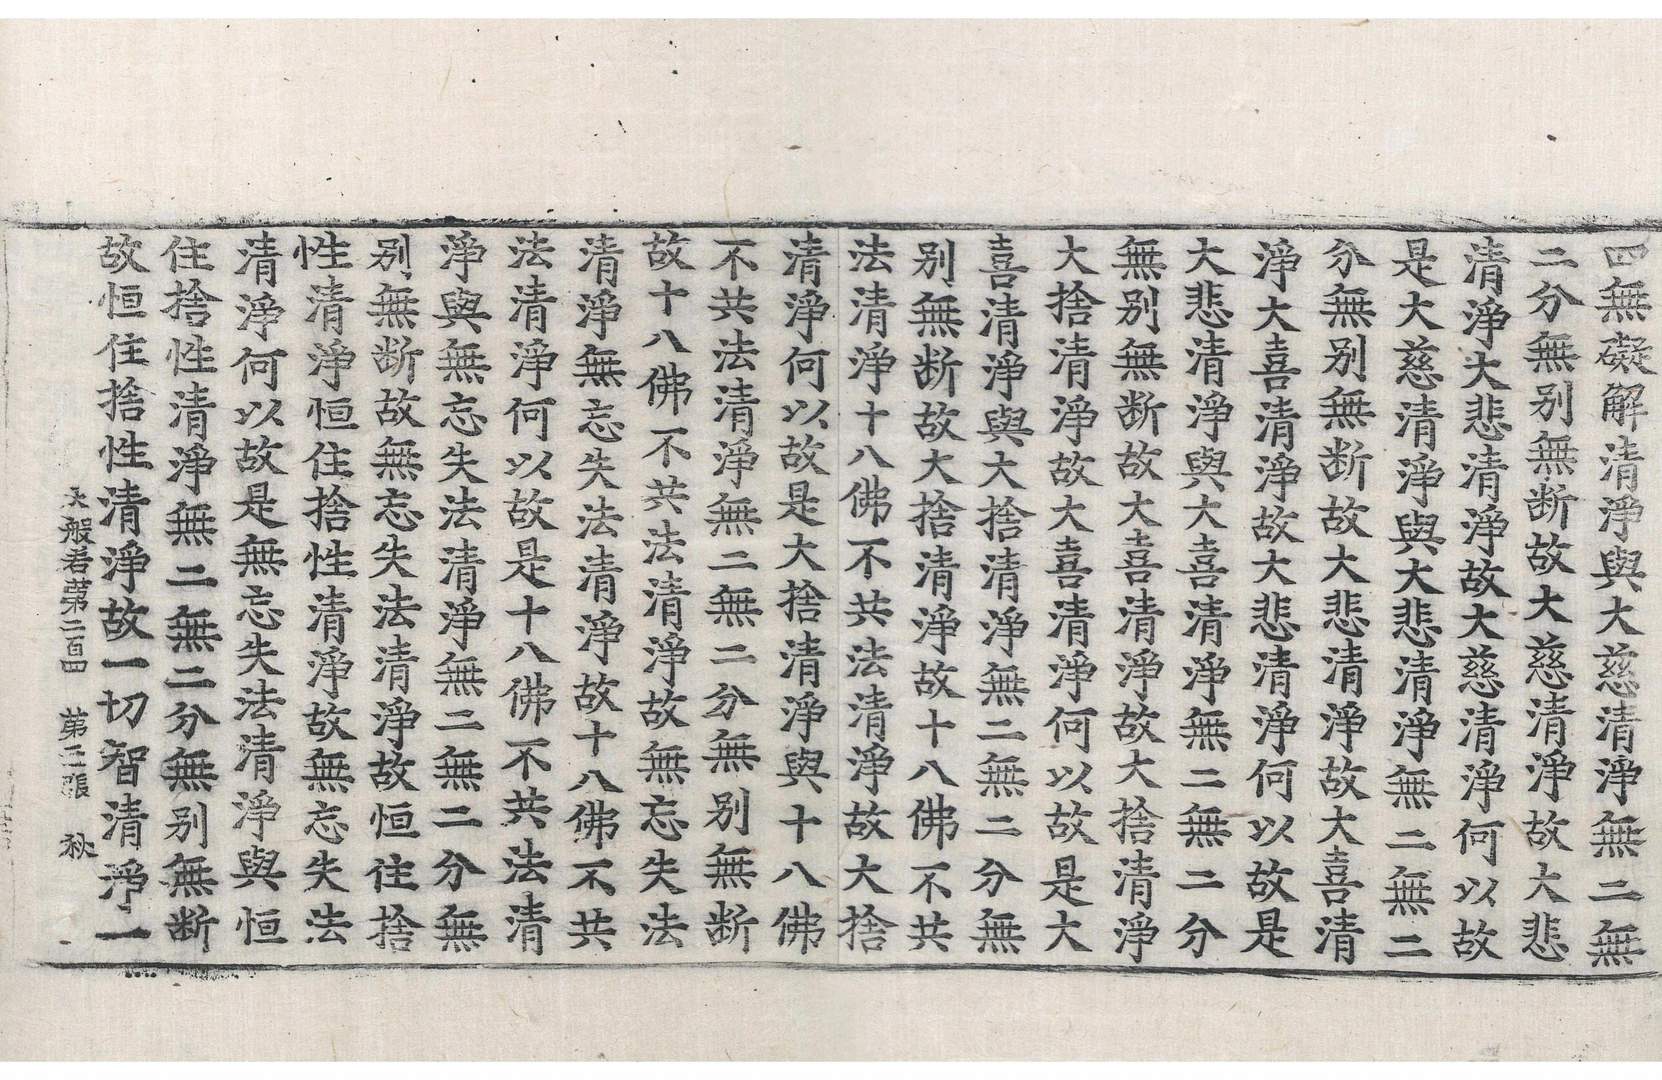 四無礙解清淨與大慈清淨無二無
二分無别無断故大慈清淨故大悲
清淨大悲清淨故大慈清淨何以故
是大慈清淨與大悲清淨無二無二
分無别無断故大悲清淨故大喜清
淨大喜清淨故大悲清淨何以故是
大悲清淨與大喜清淨無二無二分
無别無断故大喜清淨故大捨清淨
大捨清淨故大喜清淨何以故是大
喜清淨與大捨清淨無二無二分無
别無断故大捨清淨故十八佛不共
法清淨十八佛不共法清淨故大捨
清淨何以故是大捨清淨與十八佛
不共法清淨無二無二分無别無断
故十八佛不共法清淨故無忘失法
清淨無忘失法清淨故十八佛不共
法清淨何以故是十八佛不共法清
淨與無忘失法清淨無二無二分無
别無断故無忘失法清淨故恒住捨
性清淨恒住捨性清淨故無忘失法
清淨何以故是無忘失法清淨與恒
住捨性清淨無二無二分無别無断
故恒住捨性清淨故一切智清淨一
大般若第二百四 第三張 秋